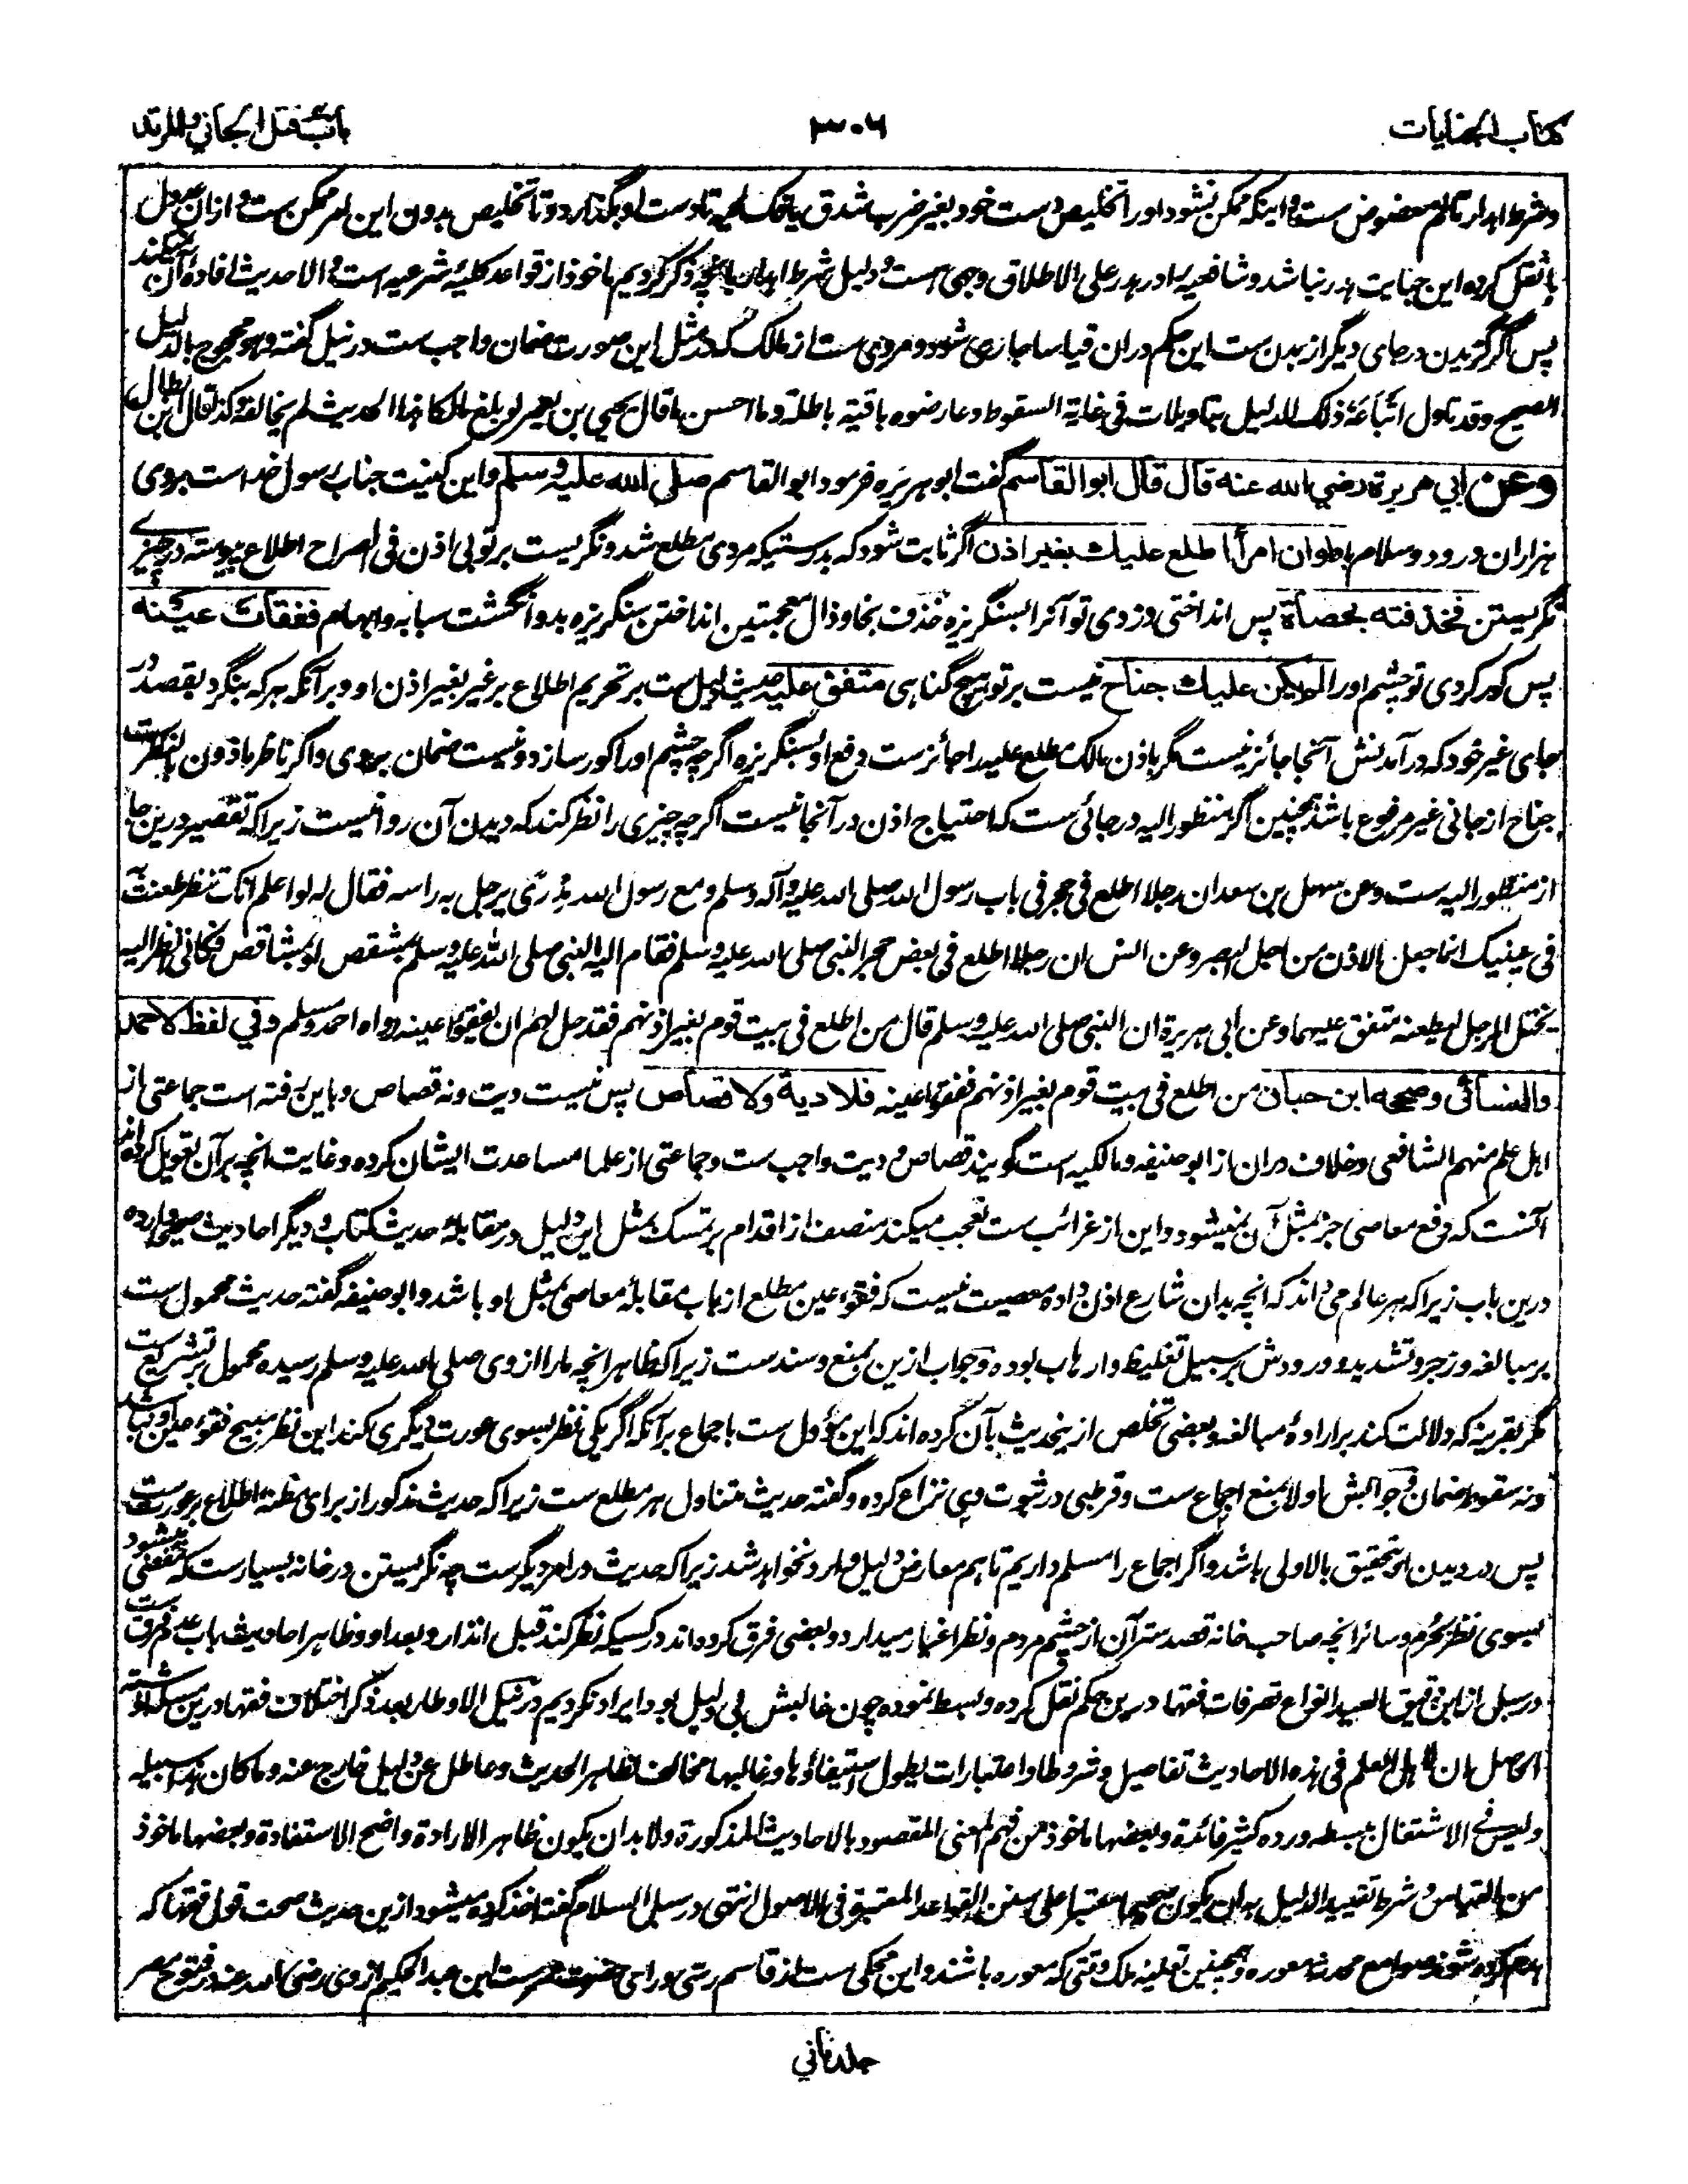 کتاب الجنایات ۳۰۶ باب قتل الجاني والمرتد
وشرط اہدار تالم معضوض ست و اینکه ممکن نشود اورا تخلیص دست خود بغیر ضرب شدق یا فک لحیه تا دست او بگذارد و تا تخلیص بدون این امر ممکن ست و ازان عدول
باثقل کرده این جنایت ہدر نباشد و شافعیه را در ہدر علی الاطلاق وجهی ہست و دلیل شرط اہدار بآنچه ذکر کردیم ماخوذ از قواعد کلیۂ شرعیه است و الا حدیث افادۂ آن نمیکند
پس اگر گزیدن در جای دیگر از بدن ست این حکم دران قیاسا جاری شود و مروی ست از مالک که در مثل این صورت ضمان واجب ست در نیل گفته وهو محجوج بالدلیل
الصحیح وقد تاول اتباعه ذلک الدلیل بتاویلات فی غایة السقوط وعارضوه باقیسة باطلة وما احسن ما قال یحیی بن یعمر لو بلغ مالکا هذا الحدیث لم یخالفه کذا قال ابن بطال
وعن ابي هريرة رضي الله عنه قال قال ابو القاسم گفت ابوہریره فرمود ابوالقاسم صلى الله عليه وسلم واین کنیت جناب رسول خداست بروی
ہزاران درود و سلام باد لو ان امرأ اطلع عليك بغير اذن اگر ثابت شود که بدرستیکه مردی مطلع شد و نگریست بر تو بی اذن فی الصراح اطلاع پیوسته در چیزے
نگریستن فخذفته بحصاة پس انداختی وزدی تو آنرا بسنگریزه خذف بخا و ذال معجمتین انداختن سنگریزه بدو انگشت سبابه وابہام ففقأت عينه
پس کور کردی تو چشم اورا لم يكن عليك جناح نیست بر تو ہیچ گناہی متفق عليه حدیث دلیل ست بر تحریم اطلاع بر غیر بغیر اذن او و بر آنکه ہر که بنگرد بقصد در
جای غیر خود که در آمدنش آنجا جائز نیست مگر باذن مالک مطلع علیه را جائز ست دفع او بسنگریزه اگرچه چشم اورا کور سازد و نیست ضمان بروی و اگر ناظر ماذون بالنظر ست
جناح از جانی غیر مرفوع باشد ہمچنین اگر منظور الیه در جائی ست که احتیاج اذن در آنجا نیست اگرچه چیزی را نظر کند که دیدن آن روا نیست زیراکه تقصیر درین جا
از منظور الیه ست وعن سهل بن سعد ان رجلا اطلع فی حجر فی باب رسول الله صلی الله علیه وآله وسلم ومع رسول الله مدری یرجل به راسه فقال له لو اعلم انک تنظر طعنت به
فی عینیک انما جعل الاذن من اجل البصر وعن انس ان رجلا اطلع فی بعض حجر النبی صلی الله علیه وسلم فقام الیه النبی صلی الله علیه وسلم بمشقص او بمشاقص فکانی انظر الیه
یختل الرجل لیطعنه متفق علیهما وعن ابی هریرة ان النبی صلی الله علیه وسلم قال من اطلع فی بیت قوم بغیر اذنهم فقد حل لهم ان یفقؤا عینه رواه احمد ومسلم وفي لفظ لاحمد
والنسائي وصححه ابن حبان من اطلع فی بیت قوم بغیر اذنهم ففقؤا عینه فلا دية ولا قصاص پس نیست دیت و نه قصاص و باین رفته است جماعتی از
اہل علم منهم الشافعی وخلاف دران از ابوحنیفه و مالکیه است گویند قصاص و دیت واجب ست وجماعتی از علما مساعدت ایشان کرده وغایت انچه بر آن تعویل کرده اند
آنست که دفع معاصی جز بمثل آن نمیشود و این از غرائب ست تعجب میکند منصف از اقدام بر تمسک بمثل این دلیل در مقابلۂ حدیث کتاب و دیگر احادیث صحیحه وارده
درین باب زیراکه ہر عالم می داند که انچه بدان شارع اذن داده معصیت نیست که فقوء عین مطلع از باب مقابلۂ معاصی بمثل او باشد وابوحنیفه گفته حدیث محمول ست
بر مبالغه و زجر و تشدید و ورودش بر سبیل تغلیظ وارہاب بوده و جواب ازین بمنع و سند ست زیراکه ظاہر انچه مارا از وی صلی الله علیه وسلم رسیده محمول بر تشریع ست
مگر بقرینه که دلالت کند بر ارادۂ مبالغه و بعضی تخلص از ینحدیث بآن کرده اند که این مؤول ست باجماع بر آنکه اگر یکی نظر بسوی عورت دیگری کند این نظر مبیح فقوء عین او نباشد
ونه سقوط ضمان و جوابش اولا بمنع اجماع ست و قرطبی در ثبوت وی نزاع کرده و گفته حدیث متناول ہر مطلع ست زیراکه حدیث مذکور از برای مظنۂ اطلاع بر عورت ست
پس در دیدن او بتحقیق بالاولی باشد و اگر اجماع را مسلم داریم تاہم معارض دلیل وارد نخواہد شد زیراکه حدیث در امر دیگر ست چه نگریستن در خانه بسیار ست که مفضی میشود
بسوی نظر حُرم و سائر انچه صاحب خانه قصد ستر آن از چشم مردم و نظر اغیار میدارد و بعضی فرق کرده اند در کسیکه نظر کند قبل انذار و بعد او و ظاہر احادیث باب عدم فرق ست
در سبل از ابن دقیق العید انواع تصرفات فقہا درین حکم نقل کرده و بسط نموده چون غالبش بی دلیل بود ایراد نکردیم در نیل الاوطار بعد ذکر اختلاف فقہا درین مسئله نوشته
الحاصل ان لاہل العلم فی هذه الاحادیث تفاصیل وشروطا واعتبارات یطول استیفاؤها وغالبها مخالف لظاهر الحدیث وعاطل عن دلیل خارج عنه وما کان هذا سبیله
ولیس فی الاشتغال ببسطه ورده کثیر فائدة وبعضها ماخوذ من فهم المعنی المقصود بالاحادیث المذکورة ولا بد ان یکون ظاهر الارادة واضح الاستفادة وبعضها ماخوذ
من القیاس وشرط تقیید الدلیل به ان یکون صحیحا معتبرا علی سنن القواعد المعتبرة فی الاصول انتهی در سبل السلام گفته اخذ کرده میشود ازین حدیث صحت قول فقہا که
ہدم کرده شوند صوامع محدثه معوره وہمچنین تعلیۂ ملک وقتی که معوره باشند واین محکی ست از قاسم رسی ابن عبد الحکیم از وی رضی الله عنه در فتوح مصر
جلد ثاني